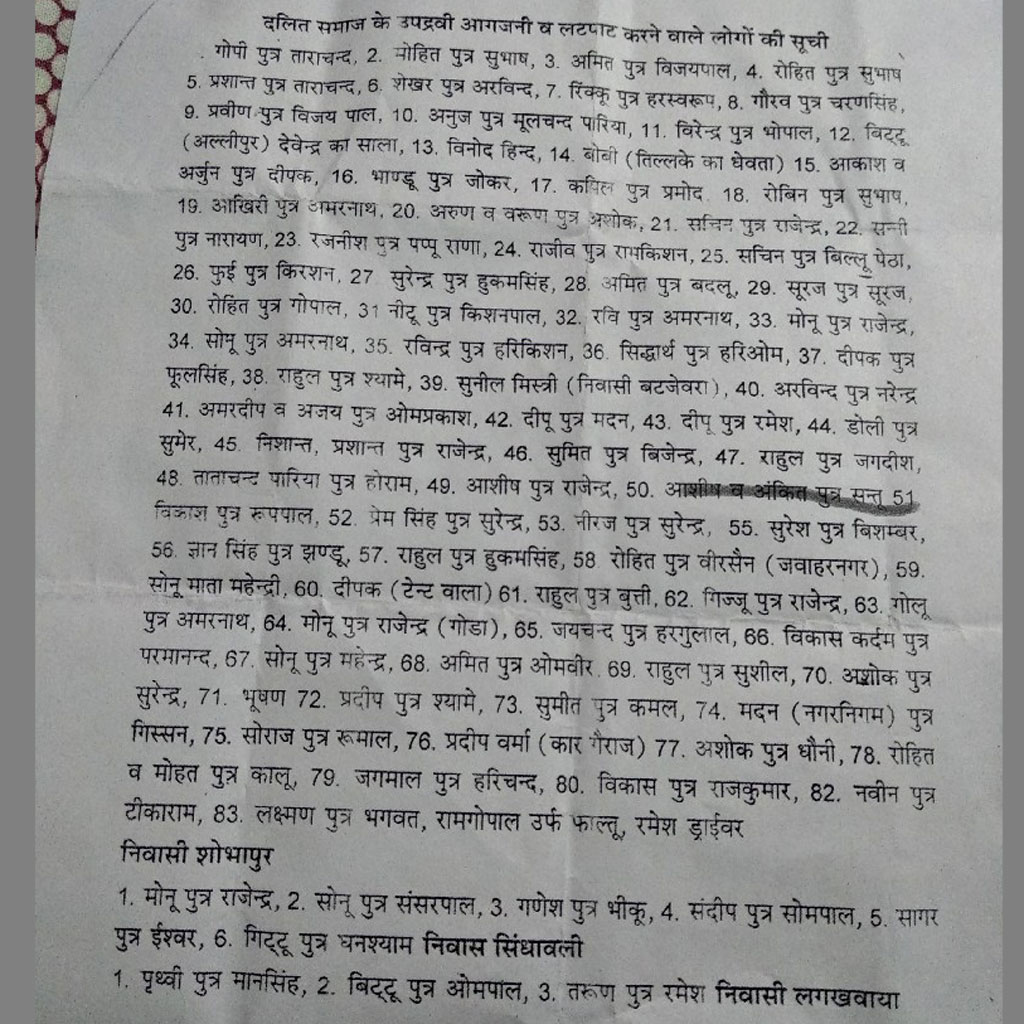 दलित समाज के उपद्रवी आगजनी व लटपाट करने वाले लोगों की सूची
गोपी पुत्र ताराचन्द, 2. मोहित पुत्र सुभाष, 3. अमित पुत्र विजयपाल, 4. रोहित पुत्र सुभाष
5. प्रशान्त पुत्र ताराचन्द, 6. शेखर पुत्र अरविन्द, 7. रिंक्कू पुत्र हरस्वरूप, 8. गौरव पुत्र चरणसिंह,
9. प्रवीण पुत्र विजय पाल, 10. अनुज पुत्र मूलचन्द पारिया, 11. विरेन्द्र पुत्र भोपाल, 12. बिट्टू
(अल्लीपुर) देवेन्द्र का साला, 13. विनोद हिन्द, 14. बोबी (तिल्लके का धेवता) 15. आकाश व
अर्जुन पुत्र दीपक, 16. भाण्डू पुत्र जोकर, 17. कपिल पुत्र प्रमोद 18. रोबिन पुत्र सुभाष,
19. आखिरी पुत्र अमरनाथ, 20. अरुण व वरूण पुत्र अशोक, 21. सचिन पुत्र राजेन्द्र, 22. सन्नी
पुत्र नारायण, 23. रजनीश पुत्र पप्पू राणा, 24. राजीव पुत्र रामकिशन, 25. सचिन पुत्र बिल्लू पेठा,
26. फुई पुत्र किरशन, 27 सुरेन्द्र पुत्र हुकमसिंह, 28. अमित पुत्र बदलू, 29. सूरज पुत्र सूरज,
30. रोहित पुत्र गोपाल, 31 नीटू पुत्र किशनपाल, 32. रवि पुत्र अमरनाथ, 33. मोनू पुत्र राजेन्द्र,
34. सोनू पुत्र अमरनाथ, 35. रविन्द्र पुत्र हरिकिशन, 36. सिद्धार्थ पुत्र हरिओम, 37. दीपक पुत्र
फूलसिंह, 38. राहुल पुत्र श्यामे, 39. सुनील मिस्त्री (निवासी बटजेवरा), 40. अरविन्द पुत्र नरेन्द्र
41. अमरदीप व अजय पुत्र ओमप्रकाश, 42. दीपू पुत्र मदन, 43. दीपू पुत्र रमेश, 44. डोली पुत्र
सुमेर, 45. निशान्त, प्रशान्त पुत्र राजेन्द्र, 46. सुमित पुत्र बिजेन्द्र, 47. राहुल पुत्र जगदीश,
48. ताताचन्द पारिया पुत्र होराम, 49. आशीष पुत्र राजेन्द्र, 50. आशीष व अंकित पुत्र सन्तू 51
विकाश पुत्र रूपपाल, 52. प्रेम सिंह पुत्र सुरेन्द्र, 53. नीरज पुत्र सुरेन्द्र, 55. सुरेश पुत्र बिशम्बर,
56. ज्ञान सिंह पुत्र झण्डू, 57. राहुल पुत्र हुकमसिंह, 58 रोहित पुत्र वीरसैन (जवाहरनगर), 59.
सोनू माता महेन्द्री, 60. दीपक (टेन्ट वाला) 61. राहुल पुत्र बुत्ती, 62. गिज्जू पुत्र राजेन्द्र, 63. गोलू
पुत्र अमरनाथ, 64. मोनू पुत्र राजेन्द्र (गोडा), 65. जयचन्द पुत्र हरगुलाल, 66. विकास कर्दम पुत्र
परमानन्द, 67. सोनू पुत्र महेन्द्र, 68. अमित पुत्र ओमवीर 69. राहुल पुत्र सुशील, 70. अशोक पुत्र
सुरेन्द्र, 71. भूषण 72. प्रदीप पुत्र श्यामे, 73. सुमीत पुत्र कमल, 74. मदन (नगरनिगम) पुत्र
गिस्सन, 75. सोराज पुत्र रूमाल, 76. प्रदीप वर्मा (कार गैराज) 77. अशोक पुत्र धौनी, 78. रोहित
व मोहत पुत्र कालू, 79. जगमाल पुत्र हरिचन्द, 80. विकास पुत्र राजकुमार, 82. नवीन पुत्र
टीकाराम, 83. लक्ष्मण पुत्र भगवत, रामगोपाल उर्फ फाल्तू, रमेश ड्राईवर
निवासी शोभापुर
1. मोनू पुत्र राजेन्द्र, 2. सोनू पुत्र संसरपाल, 3. गणेश पुत्र भीकू, 4. संदीप पुत्र सोमपाल, 5. सागर
पुत्र ईश्वर, 6. गिट्टू पुत्र घनश्याम निवास सिंधावली
1. पृथ्वी पुत्र मानसिंह, 2. बिट्टू पुत्र ओमपाल, 3. तरूण पुत्र रमेश निवासी लगखवाया